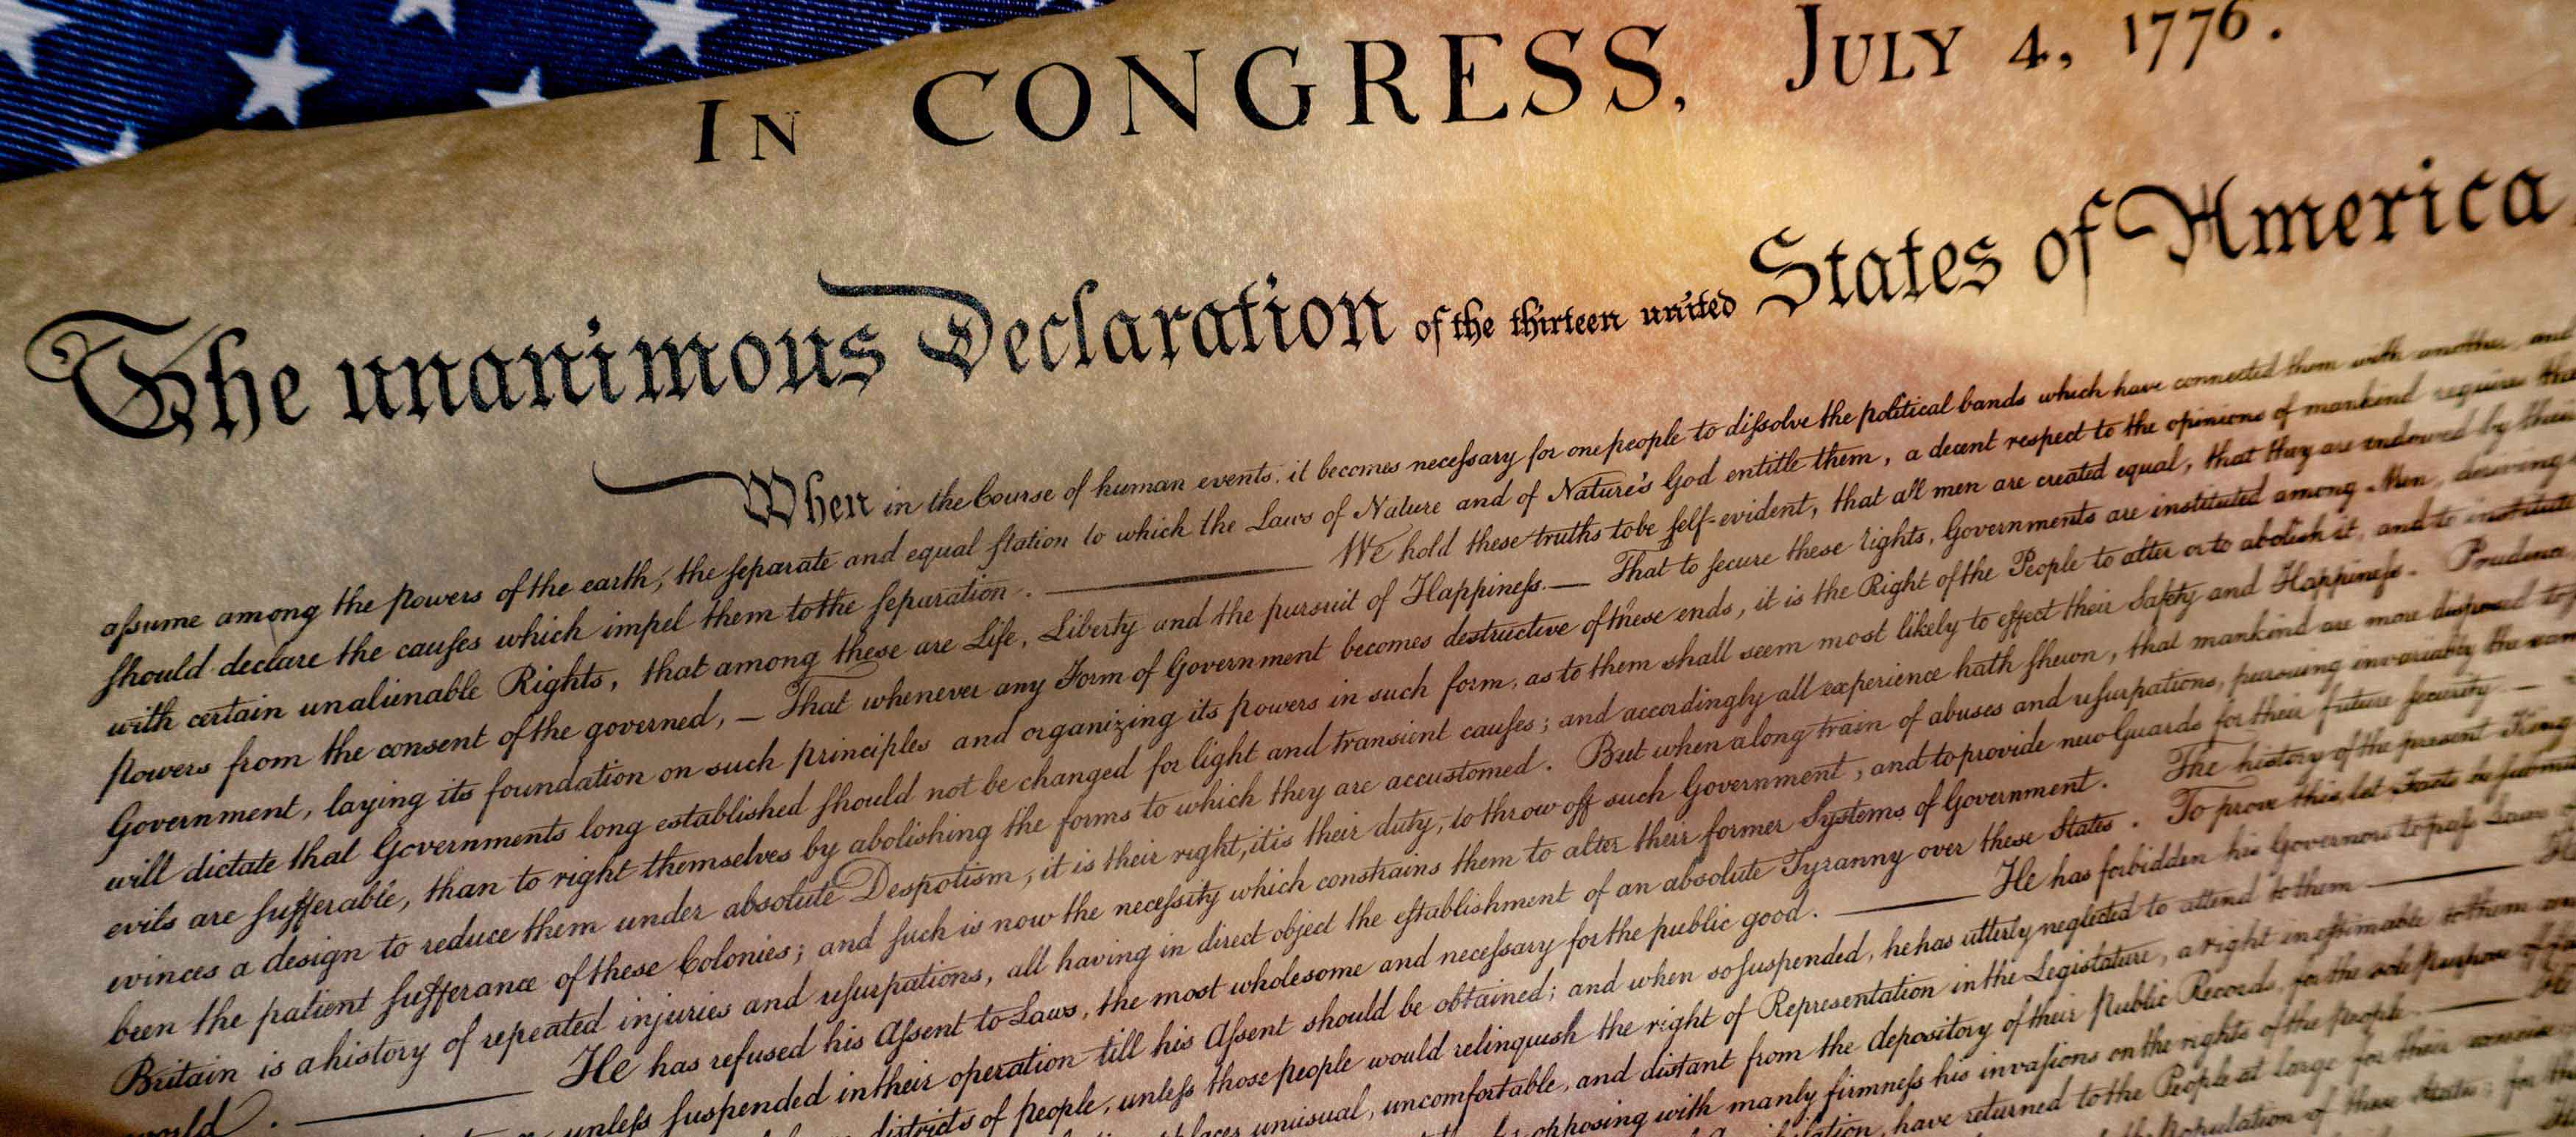 IN CONGRESS, JULY 4, 1776.
The unanimous Declaration of the thirteen united States of America
When in the Course of human events, it becomes neceſsary for one people to diſsolve the political bands which have connected them with another, and
aſsume among the powers of the earth, the ſeparate and equal ſtation to which the Laws of Nature and of Nature's God entitle them, a decent respect to the opinions of mankind requires
ſhould declare the cauſes which impel them to the ſeparation. — We hold these truths to be ſelf-evident, that all men are created equal, that they are endowed by their
with certain unalienable Rights, that among these are Life, Liberty and the pursuit of Happineſs.— That to ſecure these rights, Governments are instituted among Men, deriving
powers from the consent of the governed, — That whenever any Form of Government becomes destructive of these ends, it is the Right of the People to alter or to abolish it, and to institute
Government, laying its foundation on such principles and organizing its powers in such form, as to them shall seem most likely to effect their Safety and Happineſs. Prudence
will dictate that Governments long established ſhould not be changed for light and transient cauſes; and accordingly all experience hath ſhewn, that mankind are more disposed to
evils are ſufferable, than to right themselves by abolishing the forms to which they are accustomed. But when a long train of abuses and uſurpations, pursuing invariably the
evinces a design to reduce them under absolute Despotism, it is their right, it is their duty, to throw off such Government, and to provide new Guards for their future ſecurity. —
been the patient ſufferance of these Colonies; and ſuch is now the neceſsity which constrains them to alter their former Systems of Government. The history of the present King
Britain is a history of repeated injuries and uſurpations, all having in direct object the eſtablishment of an absolute Tyranny over these States. To prove this, let Facts be
world. — He has refused his Aſsent to Laws, the most wholesome and neceſsary for the public good. — He has forbidden his Governors to paſs Laws
unleſs ſuspended in their operation till his Aſsent should be obtained; and when so ſuspended, he has utterly neglected to attend to them — He
districts of people, unleſs those people would relinquish the right of Representation in the Legislature, a right ineſtimable to them
places unusual, uncomfortable, and distant from the depository of their Public Records, for the sole purpose of
opposing with manly firmneſs his invaſions on the rights of the people. — He
have returned to the People at large for their exercise
Population of these States; for